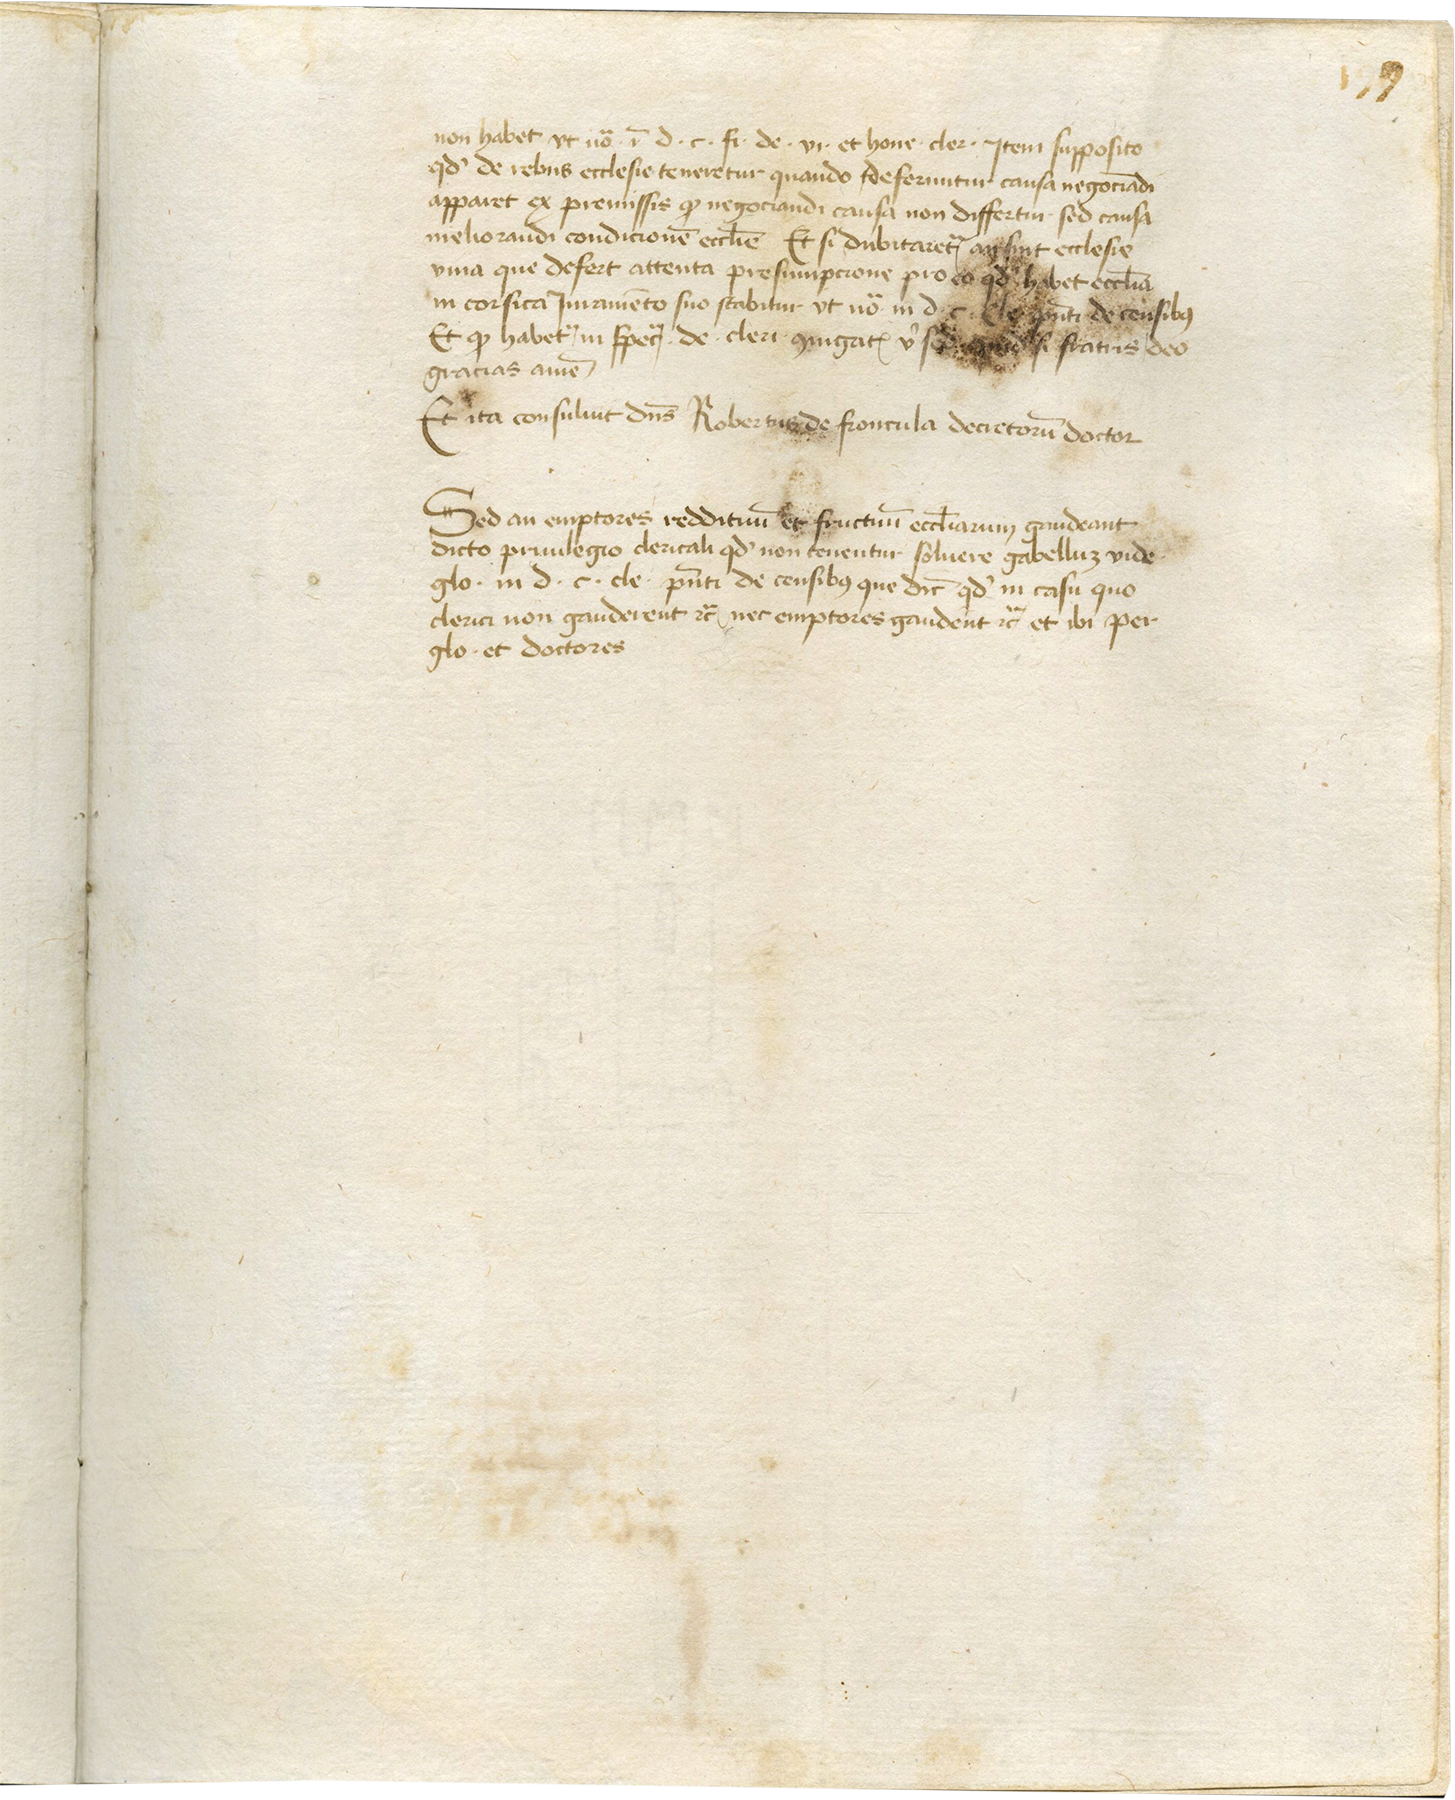 199
non habet vt nō · ī d · c · fi · de · vi · et hone · cler · Item supposito
qd' de rebus ecclesie teneretur quando deferuntur causa negociādi
apparet ex premissis ꝙ negociandi causa non differtur sed causa
meliorandi condicionē eccl̄ie Et si dubitaret᷑ an sint ecclesie
vina que defert attenta presumpcione pro eo qd' habet eccl̄ia
in corsica Iuramēto suo stabitur vt nō · in d · c · cle p̄nti de censibꝰ
Et ꝙ habet᷑ in spec̄ · de · cleri · ꝯiugat᷑ v' sed si fratris deo
gracias amē
Et ita consuluit dn̄s Robertus de froncula decretorū doctor
Sed an emptores reddituū et fructuū eccl̄iarum gaudeant
dicto priuilegio clericali qd' non tenentur soluere gabelluꝫ vide
glo · in d · c · cle · p̄nti de censibꝰ que dic̄ qd' in casu quo
clerici non gauderent ⁊c̄ nec emptores gaudent ⁊c̄ et ibi per
glo · et doctores